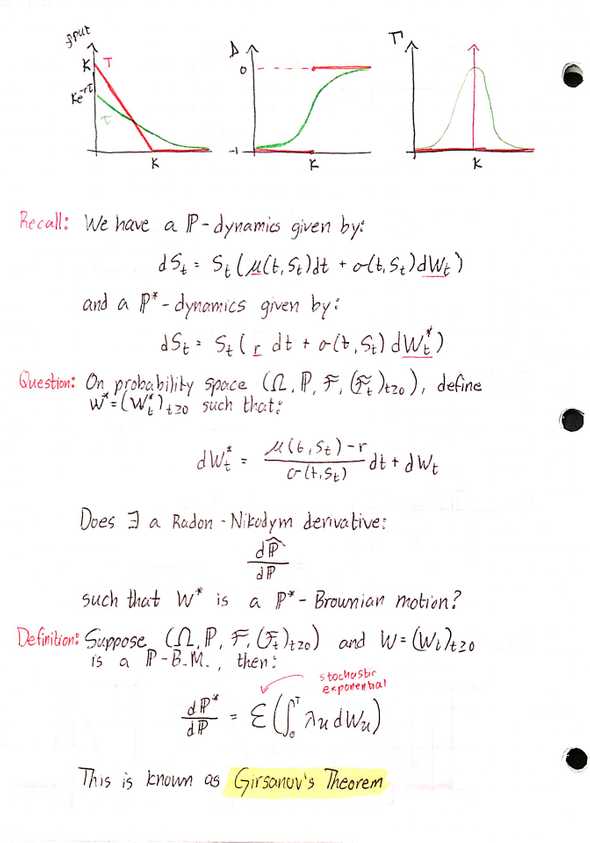 fput Δ Γ
K T 0
Ke^{-rτ}
τ
-1
K K K
Recall: We have a ℙ-dynamics given by:
dS_t = S_t(μ(t,S_t)dt + σ(t,S_t)dW_t)
and a ℙ*-dynamics given by:
dS_t = S_t(r dt + σ(t,S_t)dW_t^*)
Question: On probability space (Ω, ℙ, ℱ, (ℱ_t)_{t≥0}), define
W* = (W_t^*)_{t≥0} such that:
dW_t^* = \frac{μ(t,S_t)-r}{σ(t,S_t)} dt + dW_t
Does ∃ a Radon-Nikodym derivative:
\frac{d\hat{ℙ}}{dℙ}
such that W* is a ℙ*-Brownian motion?
Definition: Suppose (Ω, ℙ, ℱ, (ℱ_t)_{t≥0}) and W = (W_t)_{t≥0}
is a ℙ-B.M., then:
stochastic
exponential
\frac{dℙ*}{dℙ} = ℰ(∫_0^T λ_u dW_u)
This is known as Girsanov's Theorem